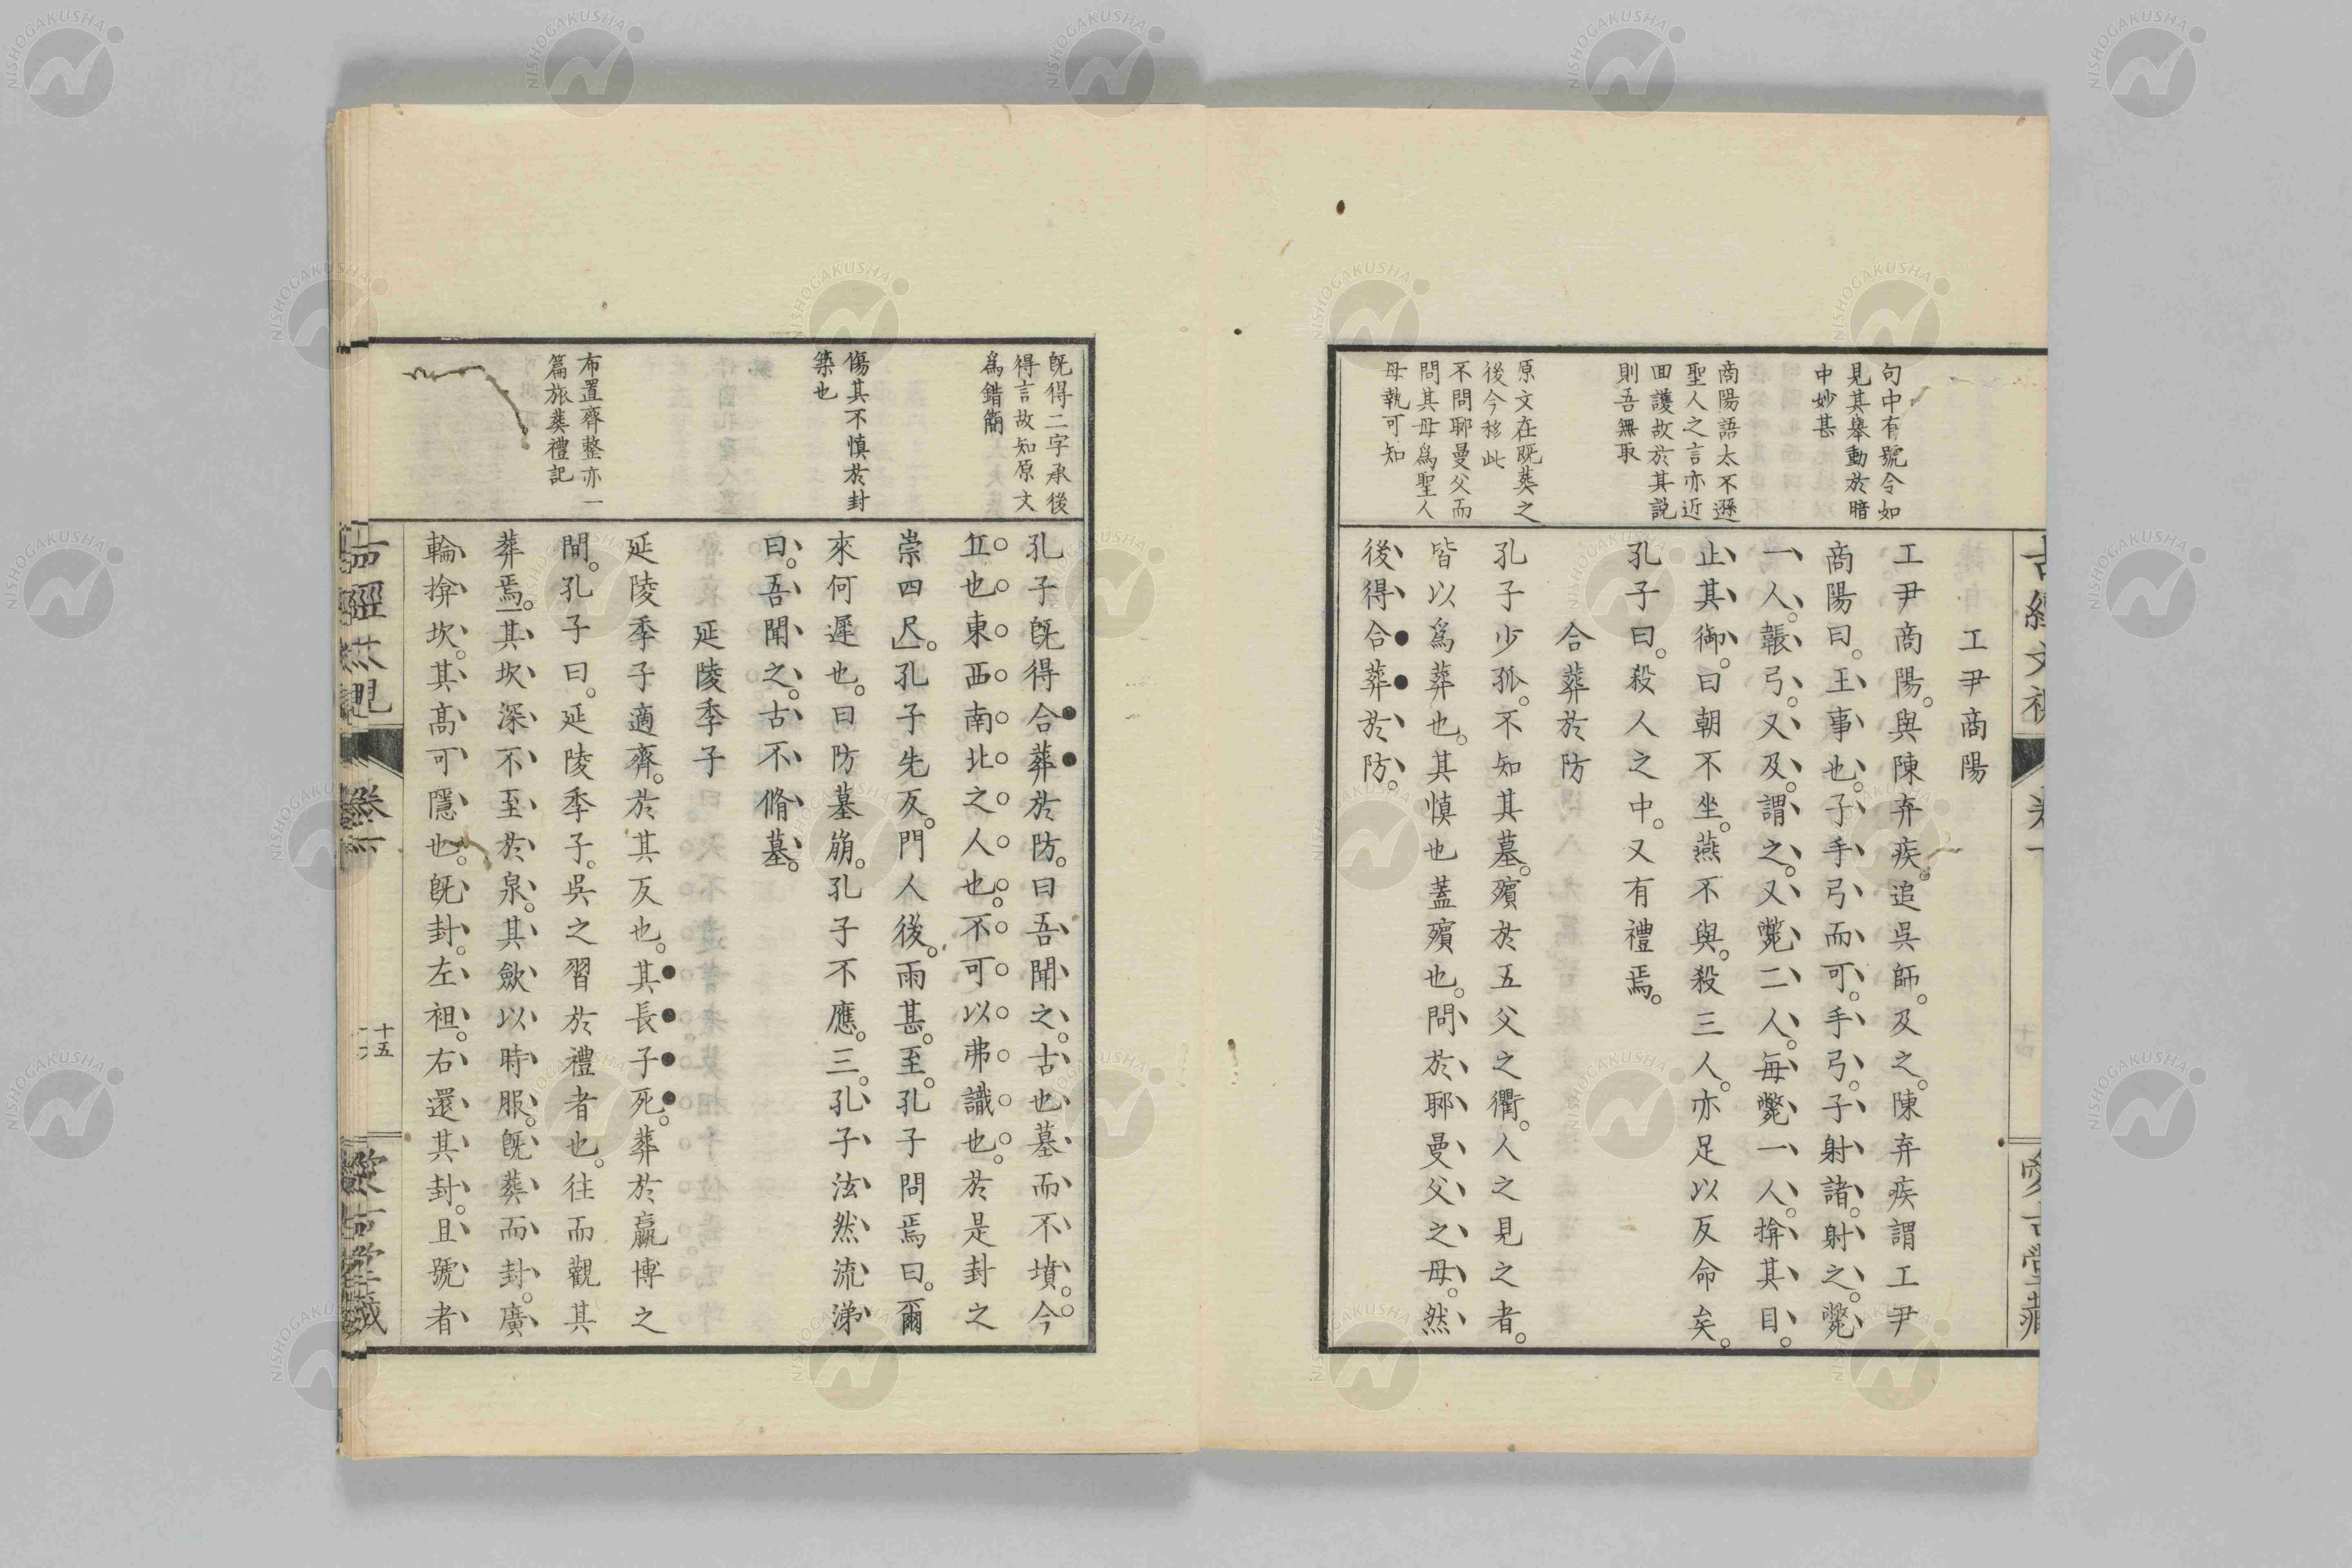 工尹商陽
工尹商陽。與陳弃疾。追吳師。及之。陳弃疾謂工尹
商陽曰。王事也。子手弓而可。手弓。子射諸。射之。斃
一人。韔弓。又及。謂之。又斃二人。每斃一人。揜其目。
止其御。曰朝不坐。燕不與。殺三人。亦足以反命矣。
孔子曰。殺人之中。又有禮焉。
合葬於防
孔子少孤。不知其墓。殯於五父之衢。人之見之者。
皆以爲葬也。其慎也蓋殯也。問於郰曼父之母。然
後得合葬於防。
句中有號令如
見其舉動於暗
中妙甚
商陽語太不遜
聖人之言亦近
回護故於其説
則吾無取
原文在既葬之
後今移此
不問郰曼父而
問其母爲聖人
母執可知
孔子既得合葬於防。曰吾聞之。古也墓而不墳。今
丘也東西南北之人也。不可以弗識也。於是封之
崇四尺。孔子先反。門人後。雨甚。至。孔子問焉曰。爾
來何遲也。曰防墓崩。孔子不應。三。孔子泫然流涕
曰。吾聞之。古不脩墓。
延陵季子
延陵季子適齊。於其反也。其長子死。葬於贏博之
間。孔子曰。延陵季子。吳之習於禮者也。往而觀其
葬焉。其坎深不至於泉。其斂以時服。既葬而封。廣
輪揜坎。其高可隱也。既封。左袒。右還其封。且號者
既得二字承後
得言故知原文
爲錯簡
傷其不慎於封
築也
布置齊整亦一
篇旅葬禮記
十五
NISHOGAKUSHA